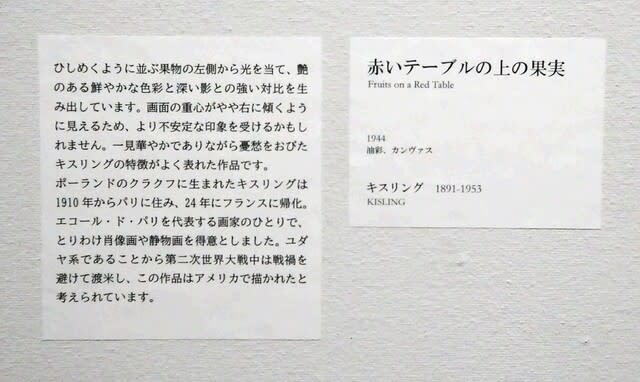 ひしめくように並ぶ果物の左側から光を当て、艶
のある鮮やかな色彩と深い影との強い対比を生
み出しています。画面の重心がやや右に傾くよう
に見えるため、より不安定な印象を受けるかもし
れません。一見華やかでありながら憂愁をおびた
キスリングの特徴がよく表れた作品です。
ポーランドのクラクフに生まれたキスリングは
1910年からパリに住み、24年にフランスに帰化。
エコール・ド・パリを代表する画家のひとりで、
とりわけ肖像画や静物画を得意としました。ユダ
ヤ系であることから第二次世界大戦中は戦禍を
避けて渡米し、この作品はアメリカで描かれたと
考えられています。
赤いテーブルの上の果実
Fruits on a Red Table
1944
油彩、カンヴァス
キスリング 1891-1953
KISLING